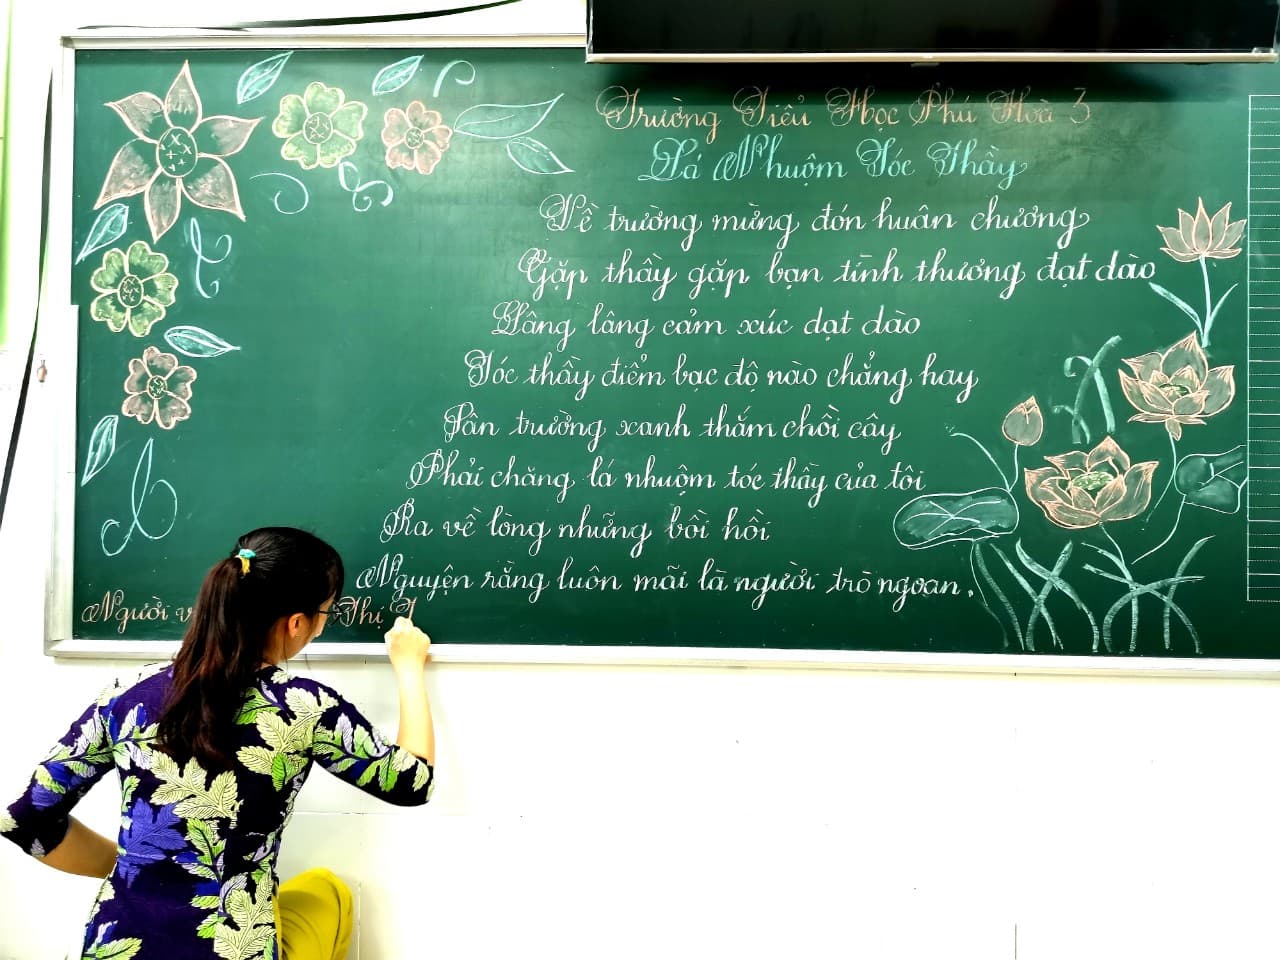 Trường Tiểu Học Phú Hoà 3
Lá Nhuộm Tóc Thầy
Về trường mừng đón huân chương
Gặp thầy gặp bạn tình thương đạt dào
Lâng lâng cảm xúc dạt dào
Tóc thầy điểm bạc độ nào chẳng hay
Sân trường xanh thắm chồi cây
Phải chăng lá nhuộm tóc thầy của tôi
Ra về lòng những bồi hồi
Nguyện rằng luôn mãi là người trò ngoan.
Người Thị